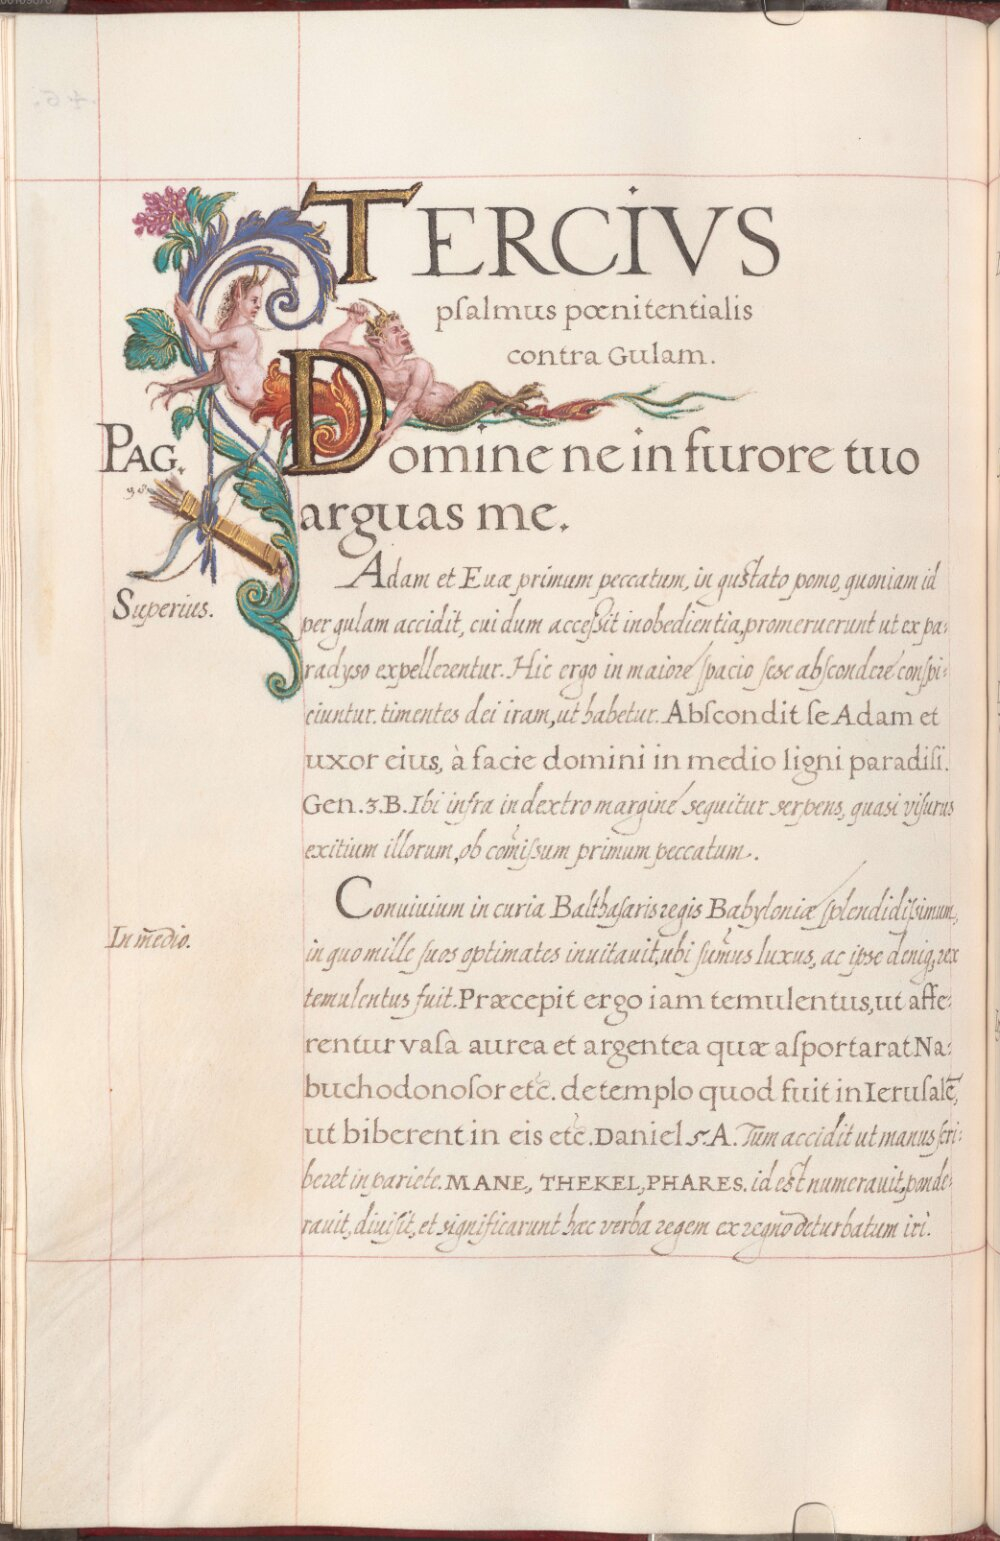 TERCIVS
pſalmus pœnitentialis
contra Gulam.
PAG.
38
Domine ne in furore tuo
arguas me.
Superius.
Adam et Euæ primum peccatum, in gustato pomo, quoniam id
per gulam accidit, cui dum acceſsit inobedientia, promeruerunt ut ex pa:
radyso expellerentur. Hic ergo in maiore ſpacio ſese abſcondere conſpi:
ciuntur. timentes dei iram, ut habetur. Abſcondit ſe Adam et
uxor eius, à facie domini in medio ligni paradiſi.
Gen. 3. B. Ibi infra in dextro margine sequitur serpens, quasi viſurus
exitium illorum, ob com̄iſsum primum peccatum.
In medio.
Conuiuium in curia Balthaſaris regis Babyloniæ ſplendidiſsimum,
in quo mille ſuos optimates inuitauit, ubi ſum̄us luxus, ac ipse deniq, rex
temulentus fuit. Præcepit ergo iam temulentus, ut affe:
rentur vaſa aurea et argentea quæ aſportarat Na:
buchodonoſor etc. de templo quod fuit in Ieruſalē,
ut biberent in eis etc. Daniel 5. A. Tum accidit ut manus ſcri:
beret in pariete. MANE, THEKEL, PHARES. id est numerauit, ponde:
rauit, diuiſit, et significarunt hæc verba regem ex regno deturbatum iri.